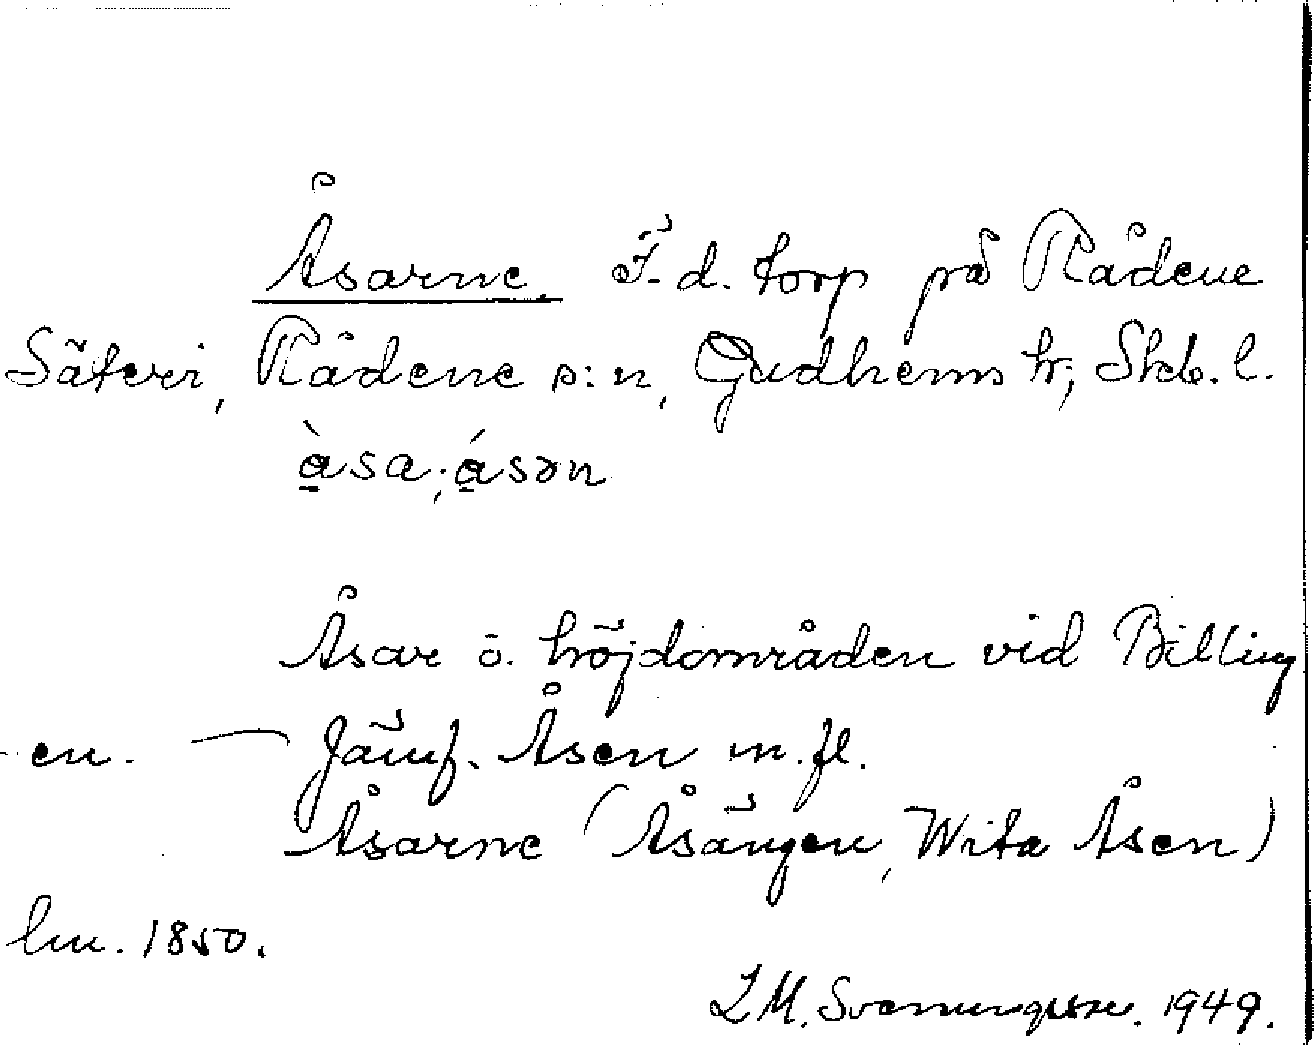 Åsarne. F.d. torp på Rådene
Säteri, Rådene s:n, Gudhems hr, Skb. l.
à̱sa; á̱sən
Åsar o. höjdområden vid Billing
- en. — Jämf. Åsen m.fl.
Åsarne (Åsängen, Wita Åsen)
lm. 1850.
L M. Svenungsson. 1949.